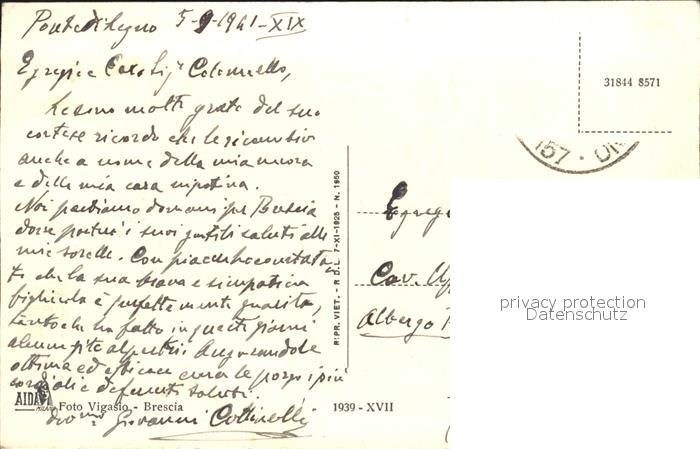 Ponte di Legno 5-9-1941-XIX
Egregio e Caro Sig. Colonnello,
Le sono molto grato del suo
cortese ricordo che le ricambio
anche a nome della mia nuora
e della mia cara nipotina.
Noi partiamo domani per Brescia
dove porterò i suoi gentili saluti alle
mie sorelle. Con piacere ho constata-
to che la sua brava e simpatica
figliuola è perfettamente guarita,
tanto che ha fatto in questi giorni
alcune gite alpestri. Augurandole
ottima ed efficace cura le porgo i più
cordiali e deferenti saluti.
dev.mo Giovanni Cottinelli
AIDA
Foto Vigasio - Brescia
1939 - XVII
RIPR. VIET. - R D. L. 7-XI-1925 - N. 1950
31844 8571
157
Egreg
Cav. Uff
Albergo
privacy protection
Datenschutz